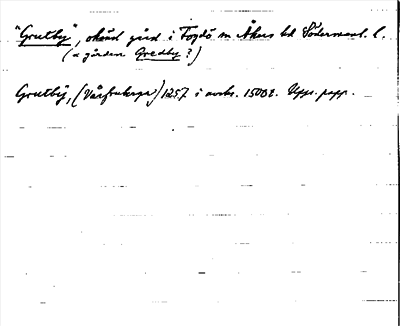 "Grutby", okänd gård i Fogdö sn Åkers hd Södermanl. l.
(= gården Gredby?)
Grutby, (Vårfruberga) 1257 i avskr. 1500 t. Upps. papp.